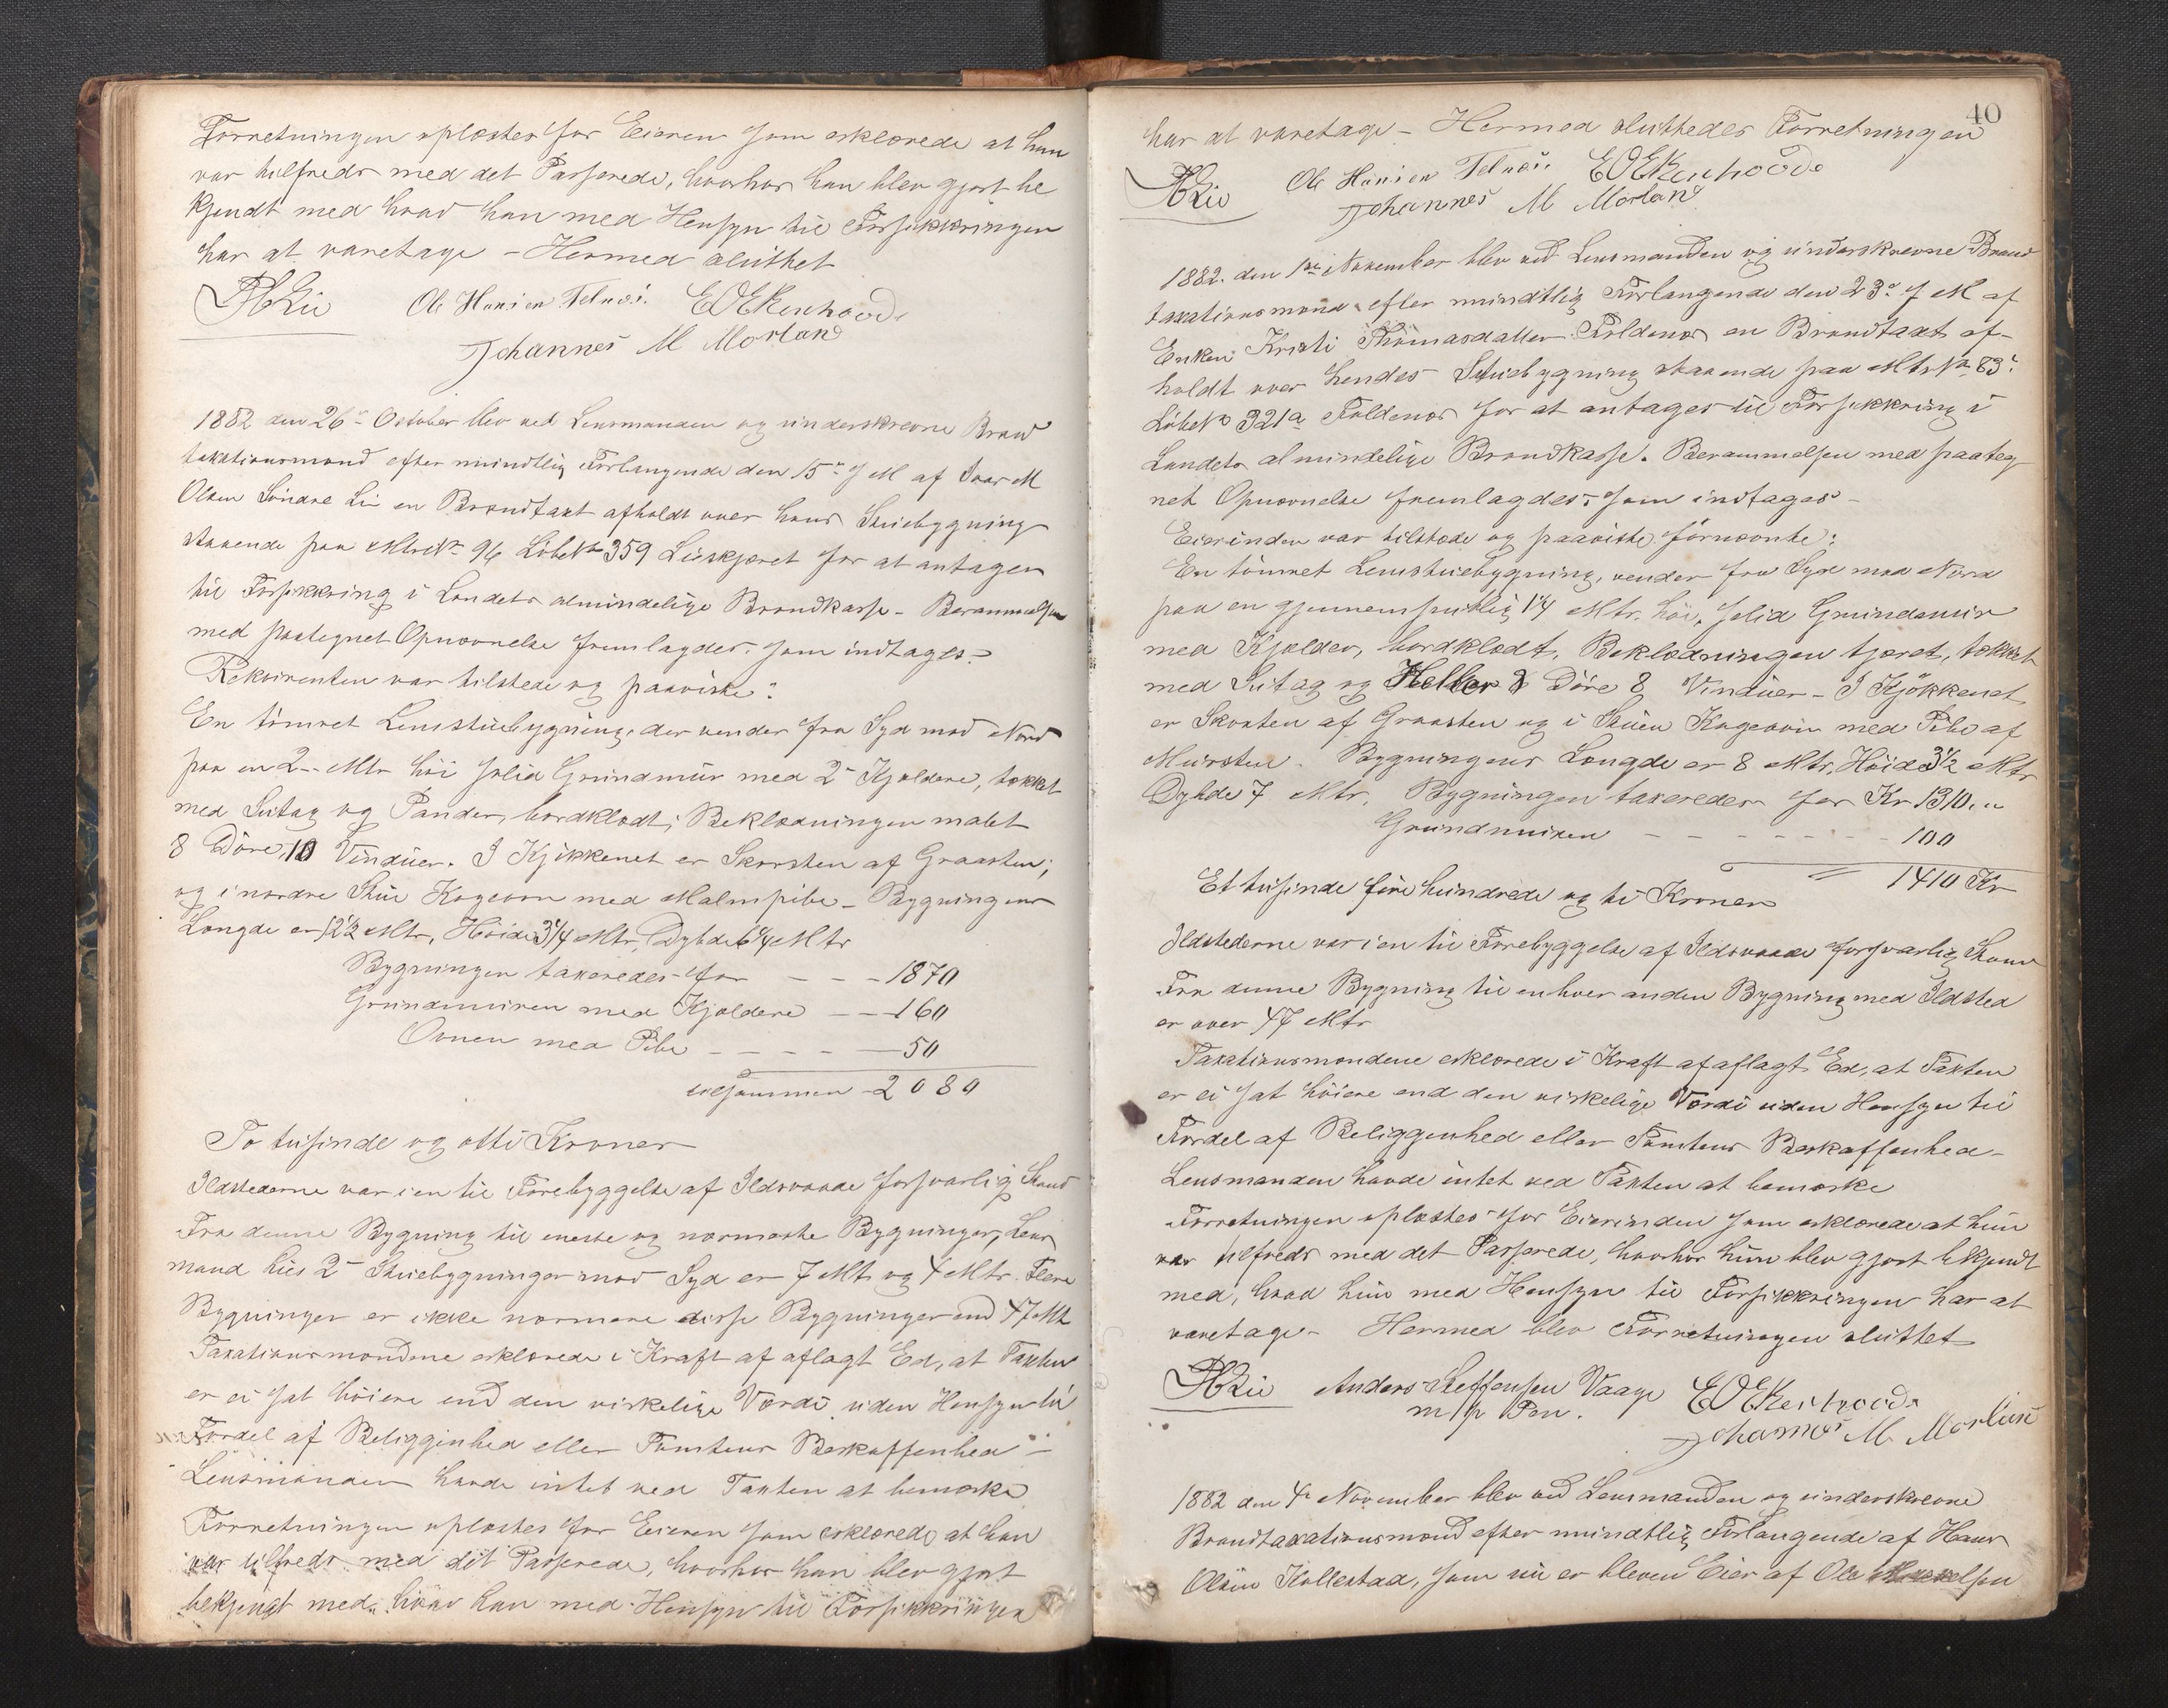 Forretningen oplæstes for Eieren som erklærede at han
var tilfreds med det Passerede, hvorhos han blev gjort be
kjendt med hvad han med Hensyn til Forsikkringen
har at varetage – Hermed sluttet
Ole Hansen Telnæs. E O Ekenhovde
Johannes M Morland
1882 den 26de October blev ved Lensmanden og underskrevne Brand
taxationsmænd efter mundtlig Forlangende den 15de f M af Ivar M
Olsen Søndre Li en Brandtaxt afholdt over hans Stuebygning
staaende paa Mtr No 96 Løbe No 359 Liarkjæret for at antages
til Forsikkring i Landets almindelige Brandkasse – Berammelsen
med paategnet Opnævnelse fremlagdes som indtages –
Rekvirenten var tilstede og paaviste:
En tømret Lemstuebygning, der vender fra Syd mod Nord
paa en 2 Mtr høi solid Grundmur med 2 Kjældere, tækket
med Sutag og Pander, bordklædt; Beklædningen malet
8 Døre, 10 Vinduer. I Kjøkkenet er Skorsten af Graasten;
og i nordre Stue Kogeovn med Malmpibe – Bygningens
Længde er 12½ Mtr, Høide 3¼ Mtr, Dybde 6¼ Mtr
Bygningen taxeredes for – – – 1870
Grundmuren med Kjældere – – 160
Ovnen med Pibe – – – – – 50
tilsammen – 2080
To tusinde og otti Kroner
Ildstederne var i en til Forebyggelse af Ildsvaade forsvarlig Stand
Fra denne Bygning til eneste og nærmeste Bygninger,
mands hus 2 Stuebygninger mod Syd er 7 Mtr og 4 Mtr. Flere
Bygninger er ikke nærmere disse Bygninger end 47 Mtr
Taxationsmændene erklærede i Kraft af aflagt Ed, at Taxten
er ei sat høiere end den virkelige Værdi uden Hensyn til
Fordel af Beliggenhed eller Tomtens Beskaffenhed –
Lensmanden havde intet ved Taxten at bemærke
Forretningen oplæstes for Eieren som erklærede at han
var tilfreds med det Passerede, hvorhos han blev gjort
bekjendt med, hvad han med Hensyn til Forsikkringen
40
har at varetage – Hermed sluttedes Forretningen
Ole Hansen Telnæs. E O Ekenhovde
Johannes M Morland
1882. den 1ste November blev ved Lensmanden og underskrevne Brand
taxationsmænd efter mundtlig Forlangende den 23de f M af
Enken Kristi Thomasdatter Foldenæs en Brandtaxt af-
holdt over hendes Stuebygning staaende paa Mtr No 83.
Løbe No 321a Foldenæs for at antages til Forsikkring i
Landets almindelige Brandkasse. Berammelsen med paateg
net Opnævnelse fremlagdes, som indtages –
Eierinden var tilstede og paaviste fornævnte:
En tømret Lemstuebygning, vender fra Syd mod Nord
paa en gjennemsnitlig 1¼ Mtr. høi, solid Grundmur
med Kjælder, bordklædt, Beklædningen tjæret, tækket
med Sutag og Heller 8 Døre 8 Vinduer – I Kjøkkenet
er Skorsten af Graasten og i Stuen Kogeovn med Pibe af
Mursten. Bygningens Længde er 8 Mtr, Høide 3½ Mtr
Dybde 7 Mtr. Bygningen taxeredes for Kr 1310.
Grundmuren – – – – – – – 100
1410 Kr
Et tusinde fire hundrede og ti Kroner
Ildstederne var i en til Forebyggelse af Ildsvaade forsvarlig Stand
Fra denne Bygning til enhver anden Bygning med Ildsted
er over 47 Mtr
Taxationsmændene erklærede i Kraft af aflagt Ed, at Taxten
er ei sat høiere end den virkelige Værdi uden Hensyn til
Fordel af Beliggenhed eller Tomtens Beskaffenhed –
Lensmanden havde intet ved Taxten at bemærke
Forretningen oplæstes for Eierinden som erklærede at hun
var tilfreds med det Passerede, hvorhos hun blev gjort bekjendt
med, hvad hun med Hensyn til Forsikkringen har at
varetage – Hermed blev Forretningen sluttet
Anders Steffensen Vaage E O Ekenhovde
m/p Pen. Johannes M Morland
1882 den 4de November blev ved Lensmanden og underskrevne
Brandtaxationsmænd efter mundtlig Forlangende af Hans
Olsen Kollestad, som nu er bleven Eier af Ole